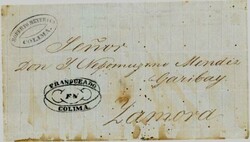 COLIMA.
Señor
Don J. Nepomuzeno Mendez
Garibay.
FRANQUEADO
EN
COLIMA.
Zamora